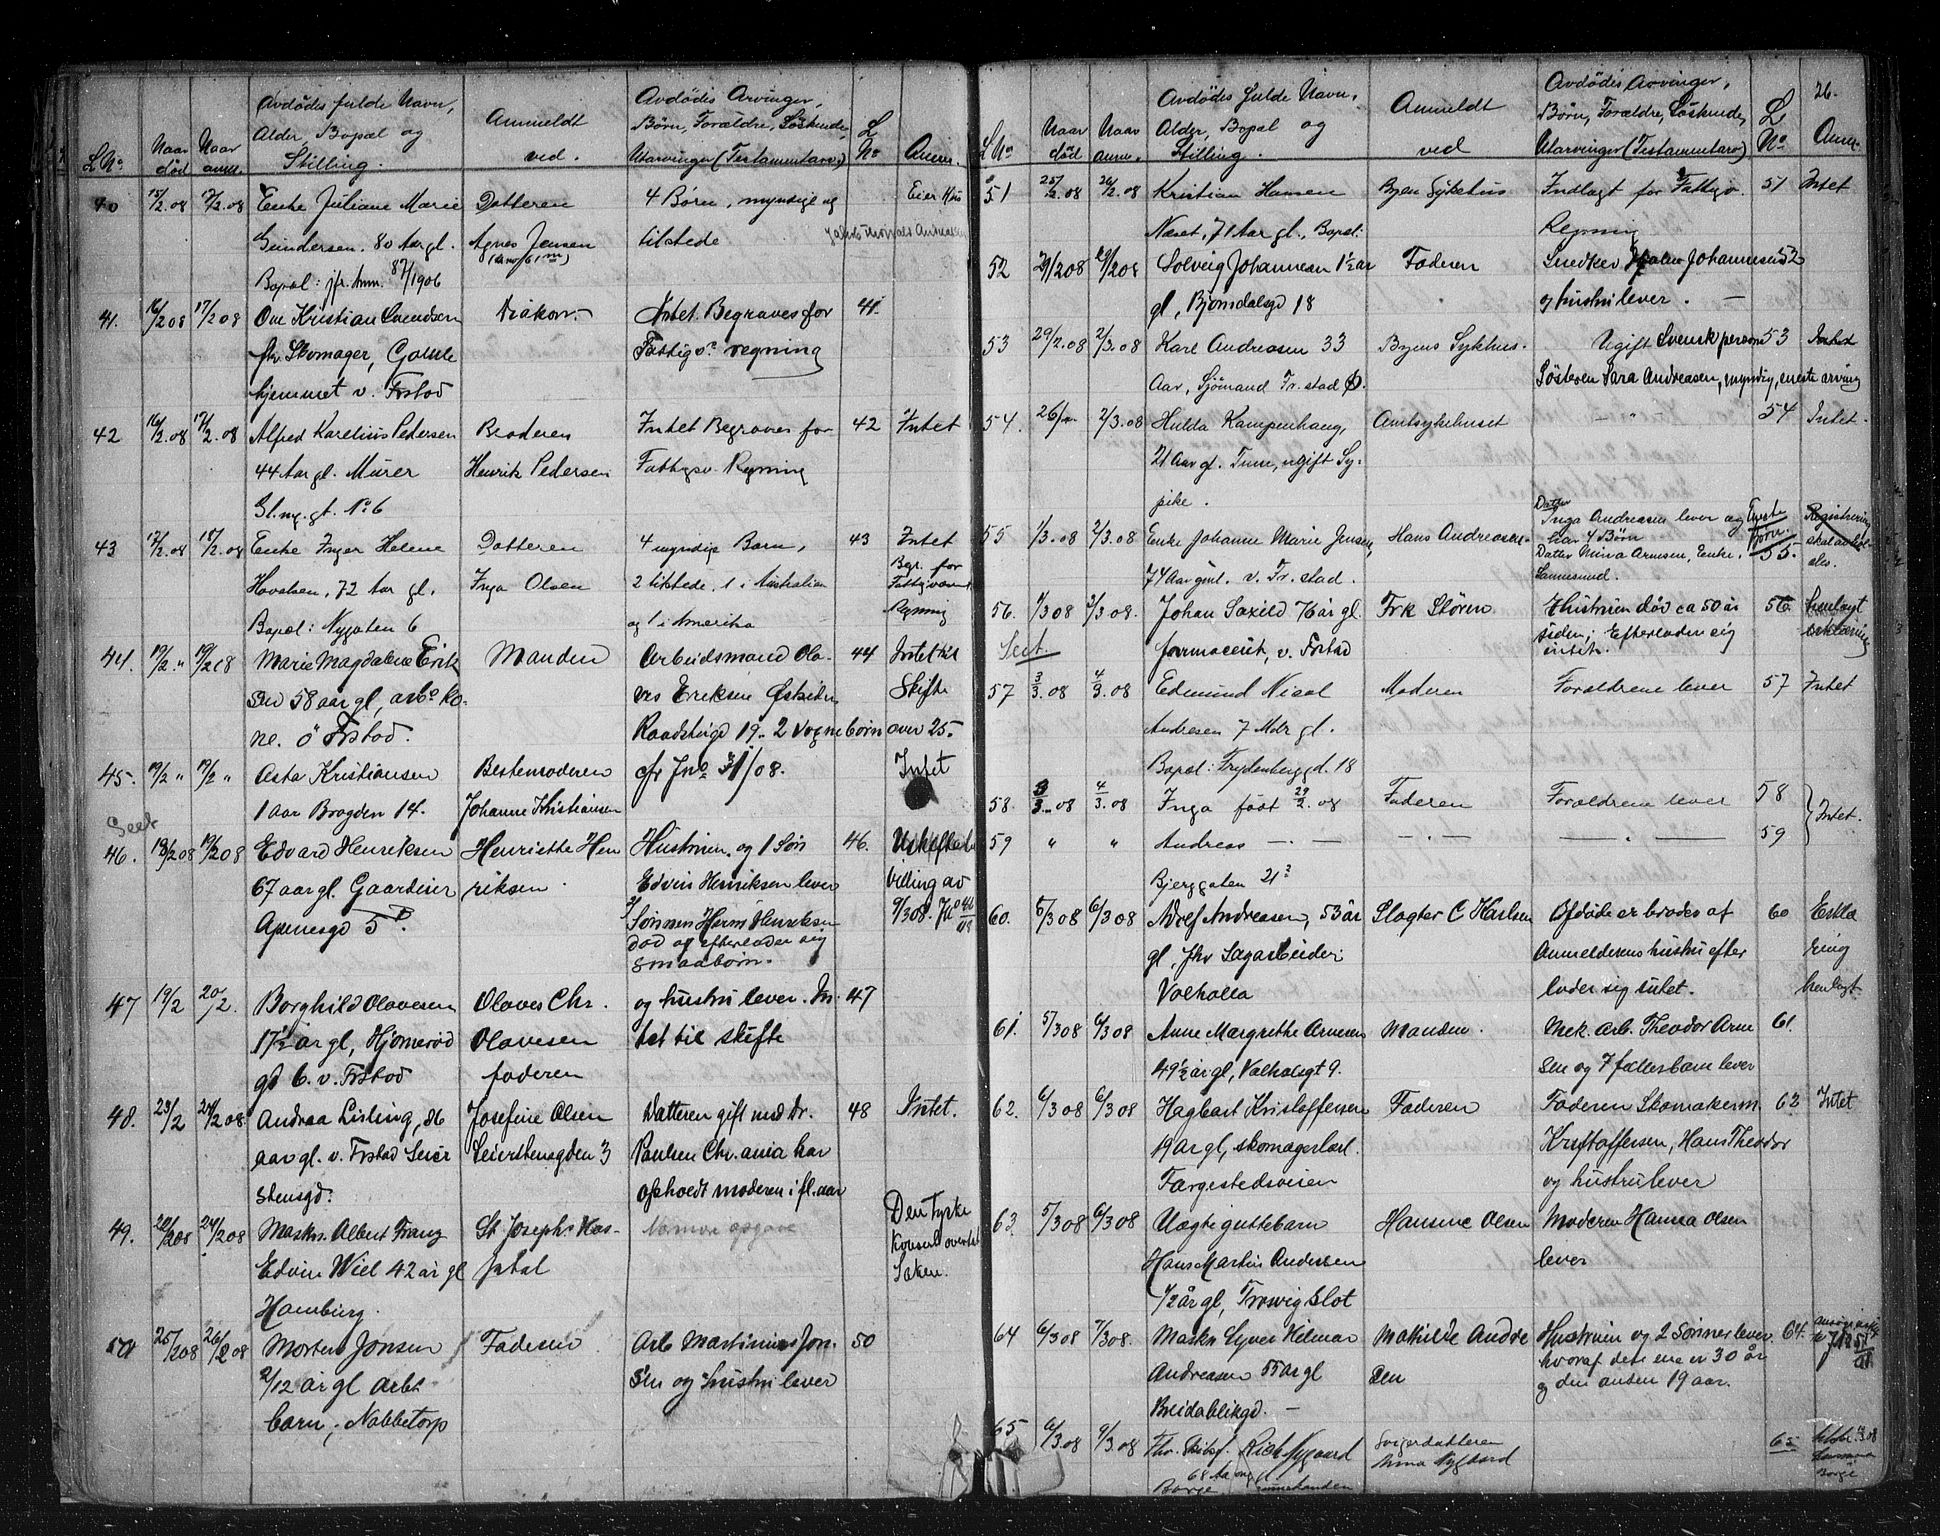 L.No. Naar død Naar anm. Avdødes fulde Navn, Alder, Bopæl og Stilling. Anmeldt ved. Avdødes Arvinger, Børn, Forældre, Søskende, Utarvinger (Testamentarv.) L No Anm.
40 15/2.08 17/2.08 Enke Juliane Marie Datteren 4 Børn, myndige og Eier Hus
Gundersen. 80 Aar gl. Agnes Jensen tilstede
Bopæl: jfr. Anm. 87/1906
41. 16/2 08 17/2 08 Ove Kristian Svendsen Diakon. Intet. Begraves for 41.
fhv Skomager, Gamle Fattigv. regning
hjemmet v. Frstad
42 16/2.08 17/2.08 Alfred Karelius Pedersen Broderen Intet Begraves for 42 Intet
44 Aar gl. Murer Henrik Pedersen Fattigsv. Regning
Gl. ny. gt. No 6
43 17/2.08 18/2.08 Enke Inger Helene Datteren 4 myndige Barn, 43 Intet
Hovelsen, 72 Aar gl. Inga Olsen 2 tilstede. 1 i Australien Begr. for Fattigvæsenets
Bopæl: Nygaten 6 og 1 i Amerika Regning
44. 19/2 " 19/2 08 Marie Magdalene Erik Manden Arbeidsmand Ola- 44 Intet til
sen 58 aar gl, arb. ko- ves Eriksen Skifte
ne. ø Frstad. Raadstugd 19. 2 vogne børn over 25.
45. 19/2 " 19/2 " Asta Kristiansen Bestemoderen cfr Jno 31/08. Intet
1 aar Brogden 14. Johanne Kristiansen
46. 18/2 08 19/2 08 Edvard Henriksen Henriette Hen Hustruen og 1 Søn 46.
67 aar gl. Gaardeier riksen. Edvin Henriksen lever villing av
Apenesgd 5 Sønnen Harm Henriksen 9/3 08.
død og efterlader sig
smaabørn.
47 19/2 20/2. Borghild Olavesen Olaves Chr. og hustru lever. In- 47
17½ år gl, Hjørnerød Olavesen tet til skifte
gd 6. v. Frstad faderen
48. 23/2 24/2 08 Andrea Lisling, 86 Josefine Olsen Datteren gift med Dr. 48 Intet.
aar gl. v. Frstad Seier Seierstensgden 3 Paulsen Chr.ania har
stensgd. opholdt moderen i fl. aar
49. 22/2 08 24/2 08 Maskn. Albert Franz St Josephs Hos- Nærmere opgave Den tyske
Edvin Wiel 42 år gl pital Konsul overtat
Hamburg. Saken.
50 25/2 08 26/2 08 Morten Jonsen Faderen Arb. Martinius Jon- 50
2/12 år gl arb. sen og hustru lever
barn, Nabbetorp
26.
L No Naar død Naar anm. Avdødes fulde Navn, Alder, Bopæl og Stilling. Anmeldt ved Avdødes Arvinger, Børn, Forældre, Søskende, Utarvinger (Testamentarv) L No Anm.
51 25/2.08 26/2.08 Kristian Hansen Byens Sykehus Indlagt for Fattigv. 51 Intet
Næset, 71 Aar gl., Bopæl: Regning
52 29/2 08 29/2 08 Solveig Johannesen 1½ ar Faderen Snedker Johannesen 52
gl, Bjørndalsgd 18 og hustru lever.
53 29/2.08 2/3.08 Karl Andreasen 33 Byens Sykehus. Ugift Svensk person 53 Intet
Aar, Sjømand Fr.stad Ø. Søsteren Sara Andreasen, myndig, eneste arving
54. 26/2 2/3.08 Hulda Kampenhaug, Amtsykehuset — " — 54 Intet.
21 Aar gl. Tune, ugift Sy-
pike.
55 1/3.08 2/3.08 Enke Johanne Marie Jensen, Hans Andreasen Datter Inga Andreasen lever og har 4 Børn Eneste Børn 55. Registrering skal avholdes.
74 Aar gml. v. Fr.stad. Datter Mina Arnesen, Enke, Sannesund.
56. 1/3 08 2/3 08. Johan Saxild 76 år gl Frk Støren Hustruen død ca 50 år 56. henlagt
farmaceut, v. Frstad siden; Efterlader sig erklæring
intet.
57 3/3.08 4/3.08 Edmund Nicol Moderen Forældrene lever 57 Intet
Andresen 7 Mdr gl.
Bopæl: Frydenberggd. 18
58. 3/3.08 4/3.08 Inga født 29/2.08 Faderen Forældrene lever 58 Intet.
59 " " Andreas — . — — . — — " — 59
Bjerggaten 21
60. 5/3 08 6/3 08 Adolf Andreasen, 53 år Slagter C Karlsen Afdøde er broder af 60 Erklæ
gl, fhv Sagarbeider Anmelderens hustru efter ring
Valhalla lader sig intet. henlagt
61. 5/3 08 6/3 08 Anne Margrethe Arnesen Manden. Mek. arb. Theodor Arne 61.
49½ år gl, Valhalagt 9. sen og 7 fællesbarn lever
62. 6/3 08 6/3 08 Hagbart Kristoffersen Faderen Faderen Skomakerm. 62 Intet
19 ar gl, skomagerlærl. Kristoffersen, Hans Theodor
Færgestedsveien og hustru lever
63. 5/3 08 6/3 08 Uægte guttebarn Hansine Olsen Moderen Hansea Olsen
Hans Martin Andersen lever
½ år gl, Trosvig slot
64 6/3 08 7/3 08. Maskn Syver Hilmar Mathilde Andre Hustruen og 2 Sønner lever 64.
Andreasen 55 ar gl sen hvoraf den ene er 30 år
Breidablikgd. — og den anden 19 aar.
65 6/3.08 9/3 08 Rich Nygaard Svigerdatteren 65
68 Aar Mina Nygaard
Borge Borge